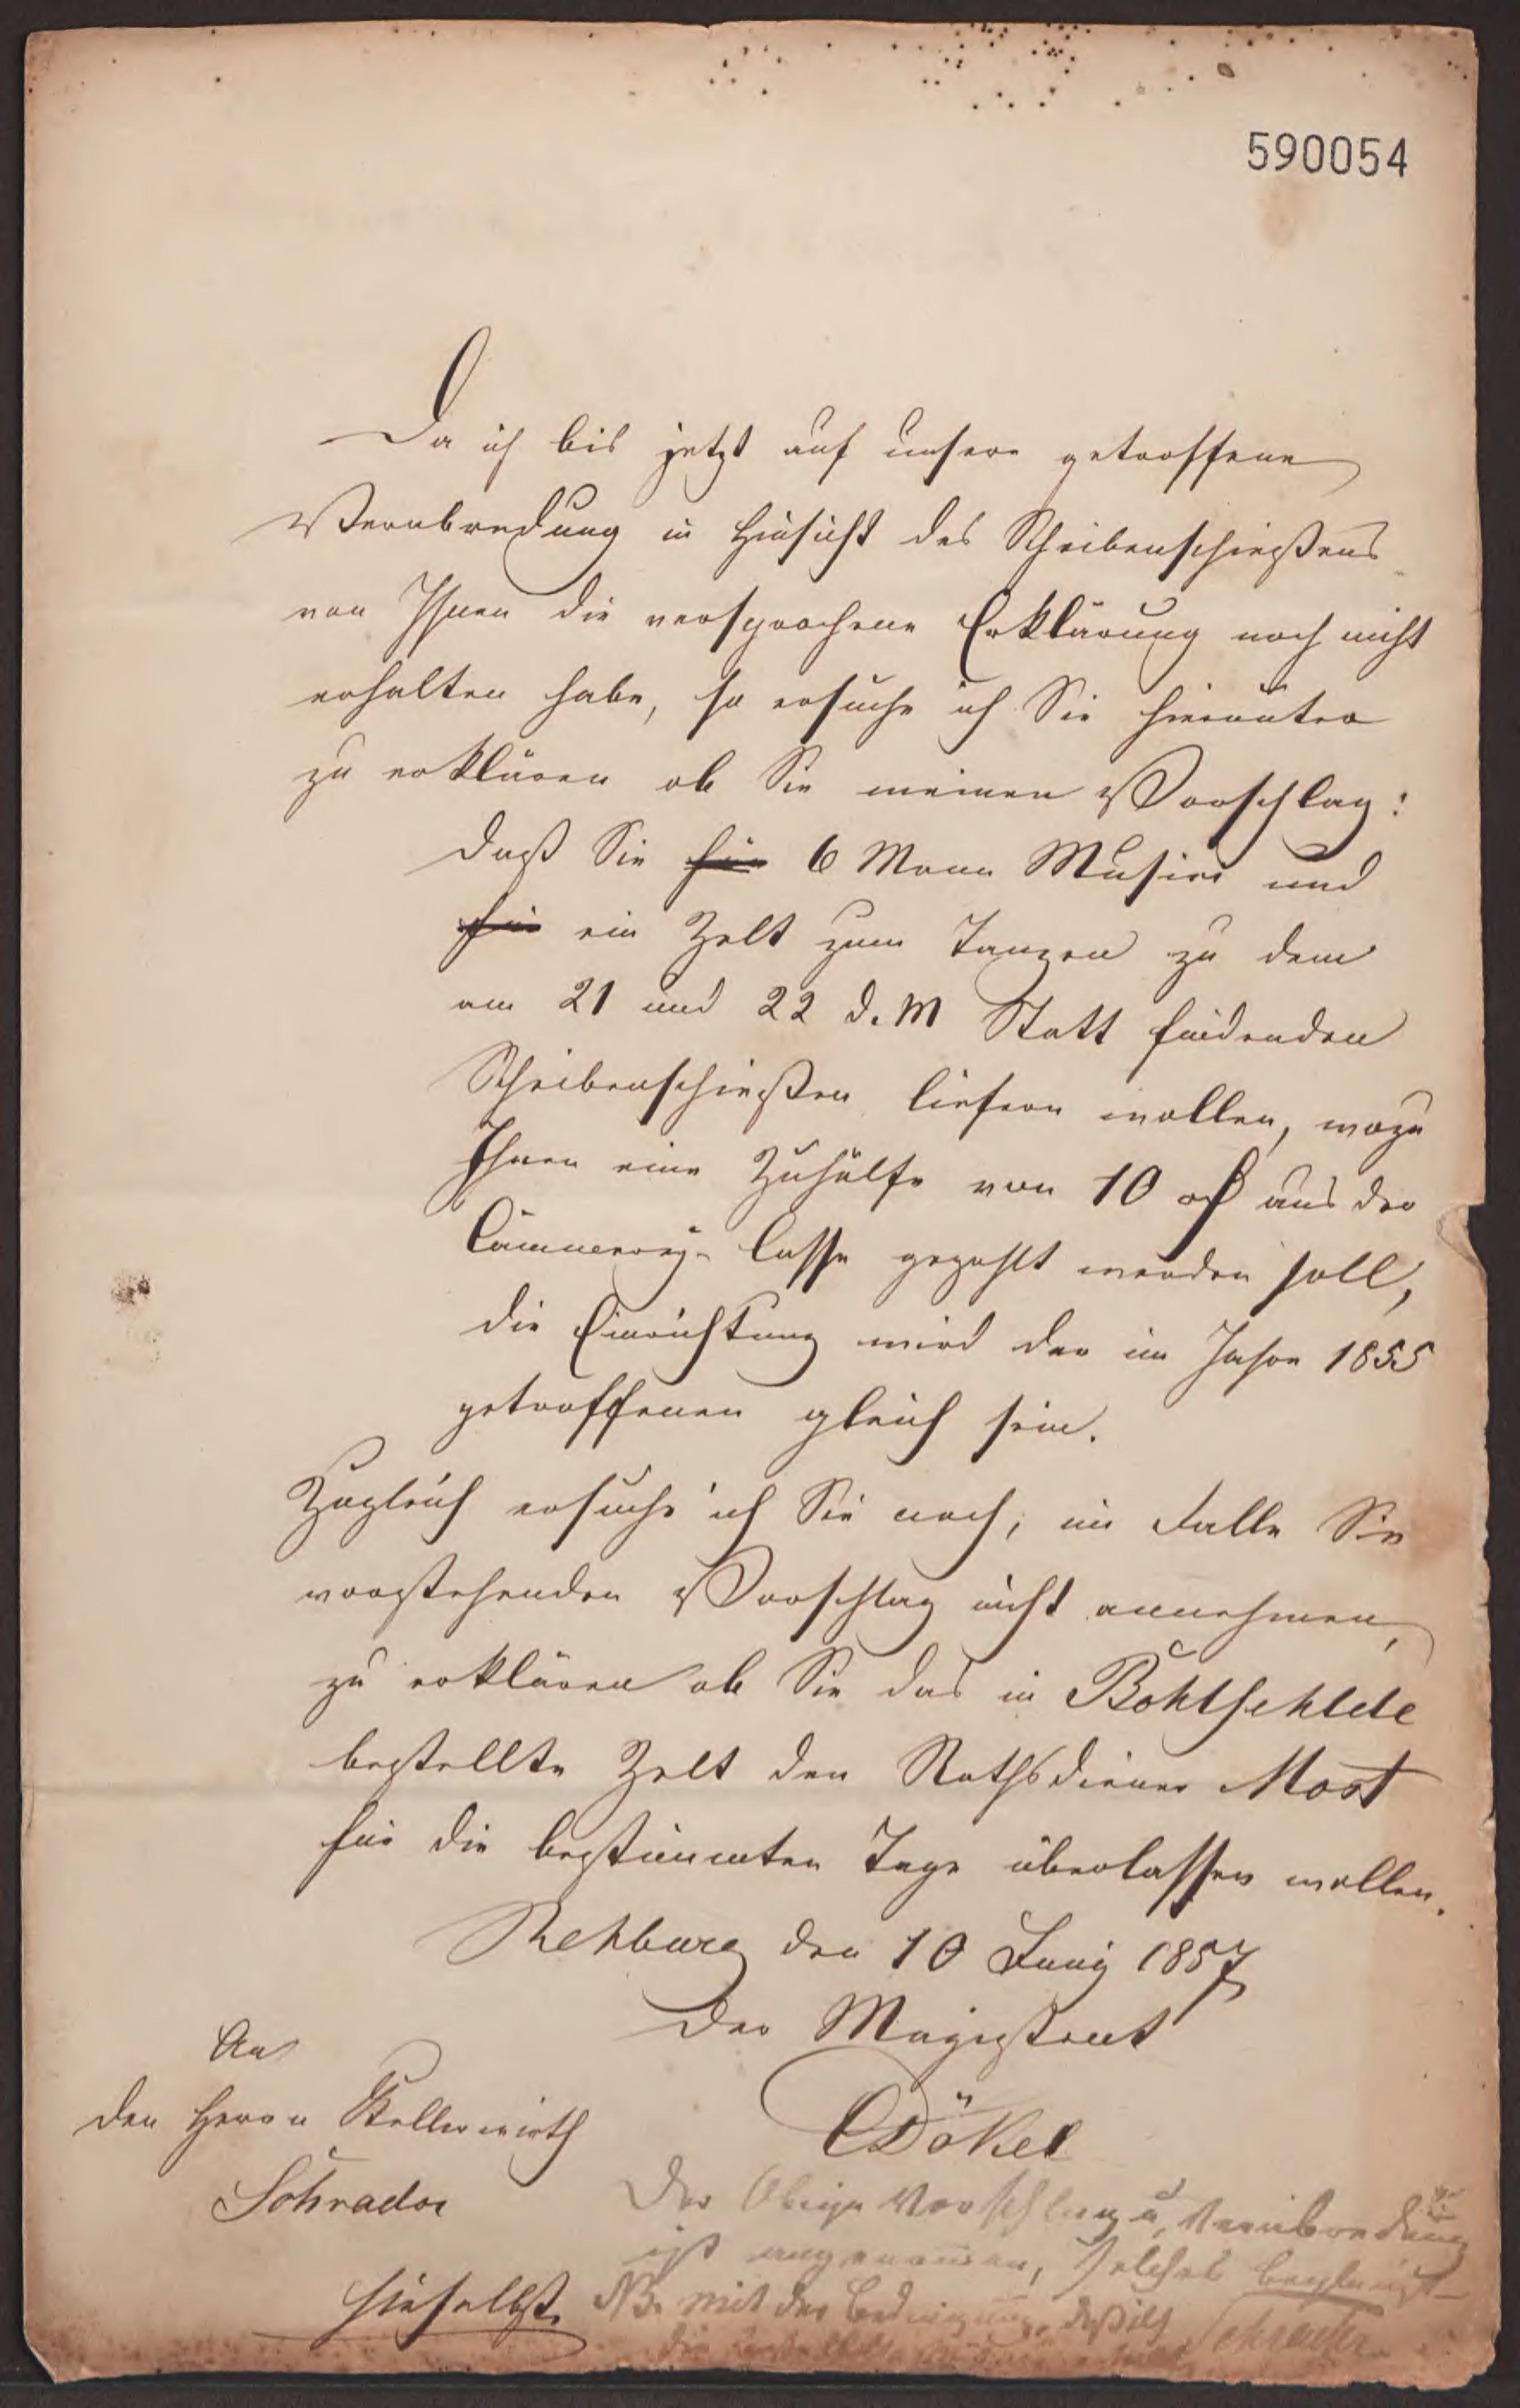 590054
Da ich bis jetzt auf unsere getroffene
Verabredung in Hinsicht des Scheibenschießens
von Ihnen die versprochene Erklärung noch nicht
erhalten habe, so ersuche ich Sie hierunter
zu erklären ob Sie meinen Vorschlag:
daß Sie für 6 Mann Musici und
für ein Zelt zum Tanzen zu dem
am 21 und 22 d. M Statt findenden
Scheibenschießen liefern wollen, wozu
Ihnen eine Zuhülfe von 10 ₰ aus der
Cämmerey-Casse gezahlt werden soll,
die Einrichtung wird der im Jahre 1855
getroffenen gleich sein.
Zugleich ersuche ich Sie noch, im Falle Sie
vorstehenden Vorschlag nicht annehmen,
zu erklären ob Sie das in
bestellte Zelt den Rathsdiener Most
für die bestimmten Tage überlassen wollen.
Rehburg den 10 Juny 1857
Der Magistrat
Dökel
An
den Herrn Kellerwirth
Schrader
hieselbst.
Der Obige Vorschlag u. Verabredung
ist angenommen, Solches beglaubigt
NB. mit der Bedingung, daß ich Schrader
die